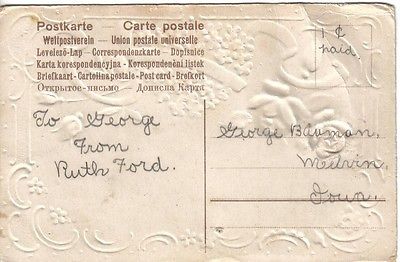 Postkarte - Carte postale
Weltpostverein - Union postale universelle
Levelező-Lap - Correspondenzkarte - Dopisnice
Karta korespondencyjna - Korespondenční listek
Briefkaart - Cartolina postale - Post card - Brefkort
Открытое письмо - Дописна Карта
1 ¢
paid.
To George
From
Ruth Ford.
George Bauman,
Melvin,
Iowa.